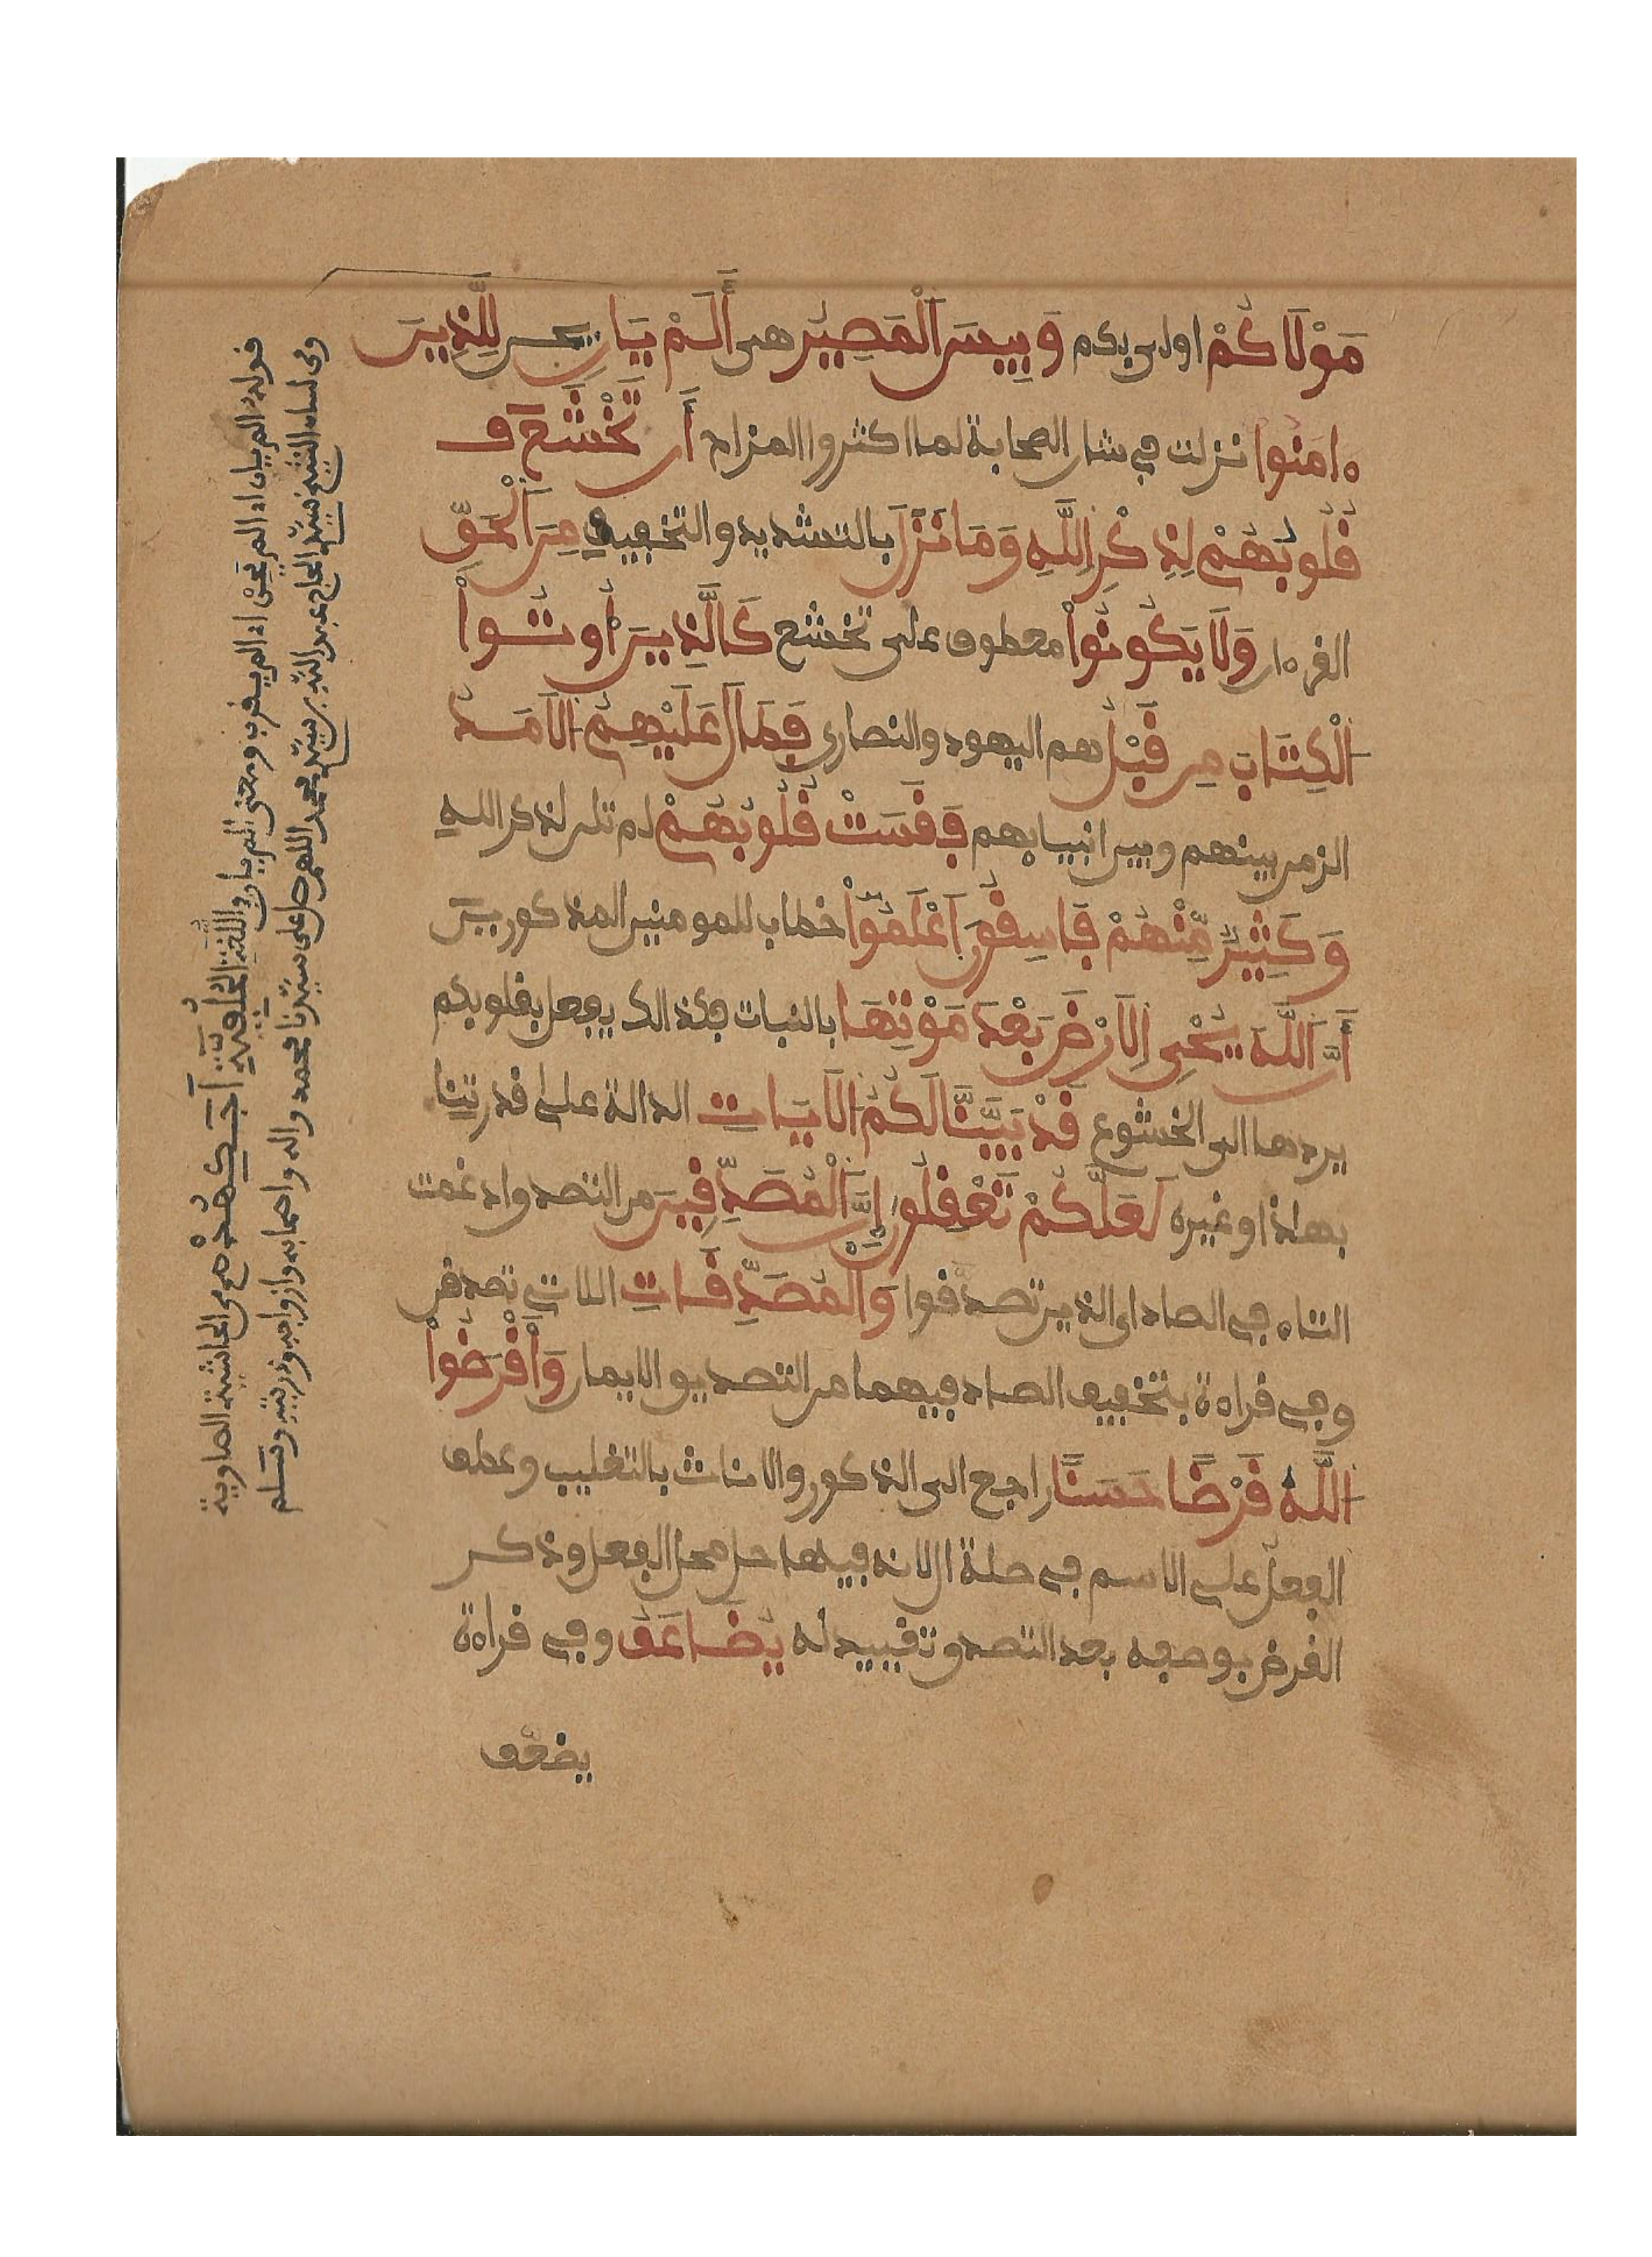 مَوْلَاكُمْ اولى بكم وَبِيسَ اَلْمَصِيرُ هى اَلَمْ يَانِ يحن لِلَّذِينَ
ءامَنُوا نزلت في شان الصحابة لما اكثروا المزاح أَن تَخْشَعَ
قُلُوبُهُمْ لِذِكْرِ اللَّهِ وَمَا نَزَّلَ بالتشديد والتخفيف مِنَ اَلْحَقِّ
القرءان وَلَا يَكُونُواْ معطوف على تخشع كَالَّذِينَ أُوتُواْ
اَلْكِتَابَ مِن قَبْلُ هم اليهود والنصارى فَطَالَ عَلَيْهِمُ اَلَامَدُ
الزمن بينهم وبين انبيايهم فَقَسَتْ قُلُوبُهُمْ لم تلن لذكر الله
وَكَثِيرٌ مِّنْهُمْ فَاسِقُونَ اَعْلَمُواْ خطاب للمومنين المذكورين
أَنَّ اَللَّهَ يُحْيِى اِلَارْضَ بَعْدَ مَوْتِهَا بالنبات فكذالك يفعل بقلوبكم
يردها الى الخشوع قَدْ بَيَّنَّا لَكُمُ اَلَايَاتِ الدالة على قدرتنا
بهاذا وغيره لَعَلَّكُمْ تَعْقِلُونَ إِنَّ اَلْمُصَّدِّقِينَ من التصدق ادغمت
التاء في الصاد اى الذين تصدقوا وَالْمُصَّدِّقَاتِ اللاتي تصدقن
وفي قراءة بتخفيف الصاد فيهما من التصديق الايمان وَأَقْرَضُواْ
اَللَّهَ قَرْضًا حَسَنًا راجع الى الذكور والاناث بالتغليب وعطف
الفعل على الاسم في صلة ال لانه فيها حل محل الفعل وذكر
القرض بوصفه بعد التصدق تقييد له يُضَاعَفُ وفي قراءة
يضعّف
قوله الم يان اى الم يحن اى الم يقرب ومعنى الم يان في اللغة
من الحاشية الصاوية
وفي لسان الشيخ سيد الحاج عبد الله بن سيد محمد اللهم صل على سيدنا محمد واله واصحابه وازواجه وذريته وسلم